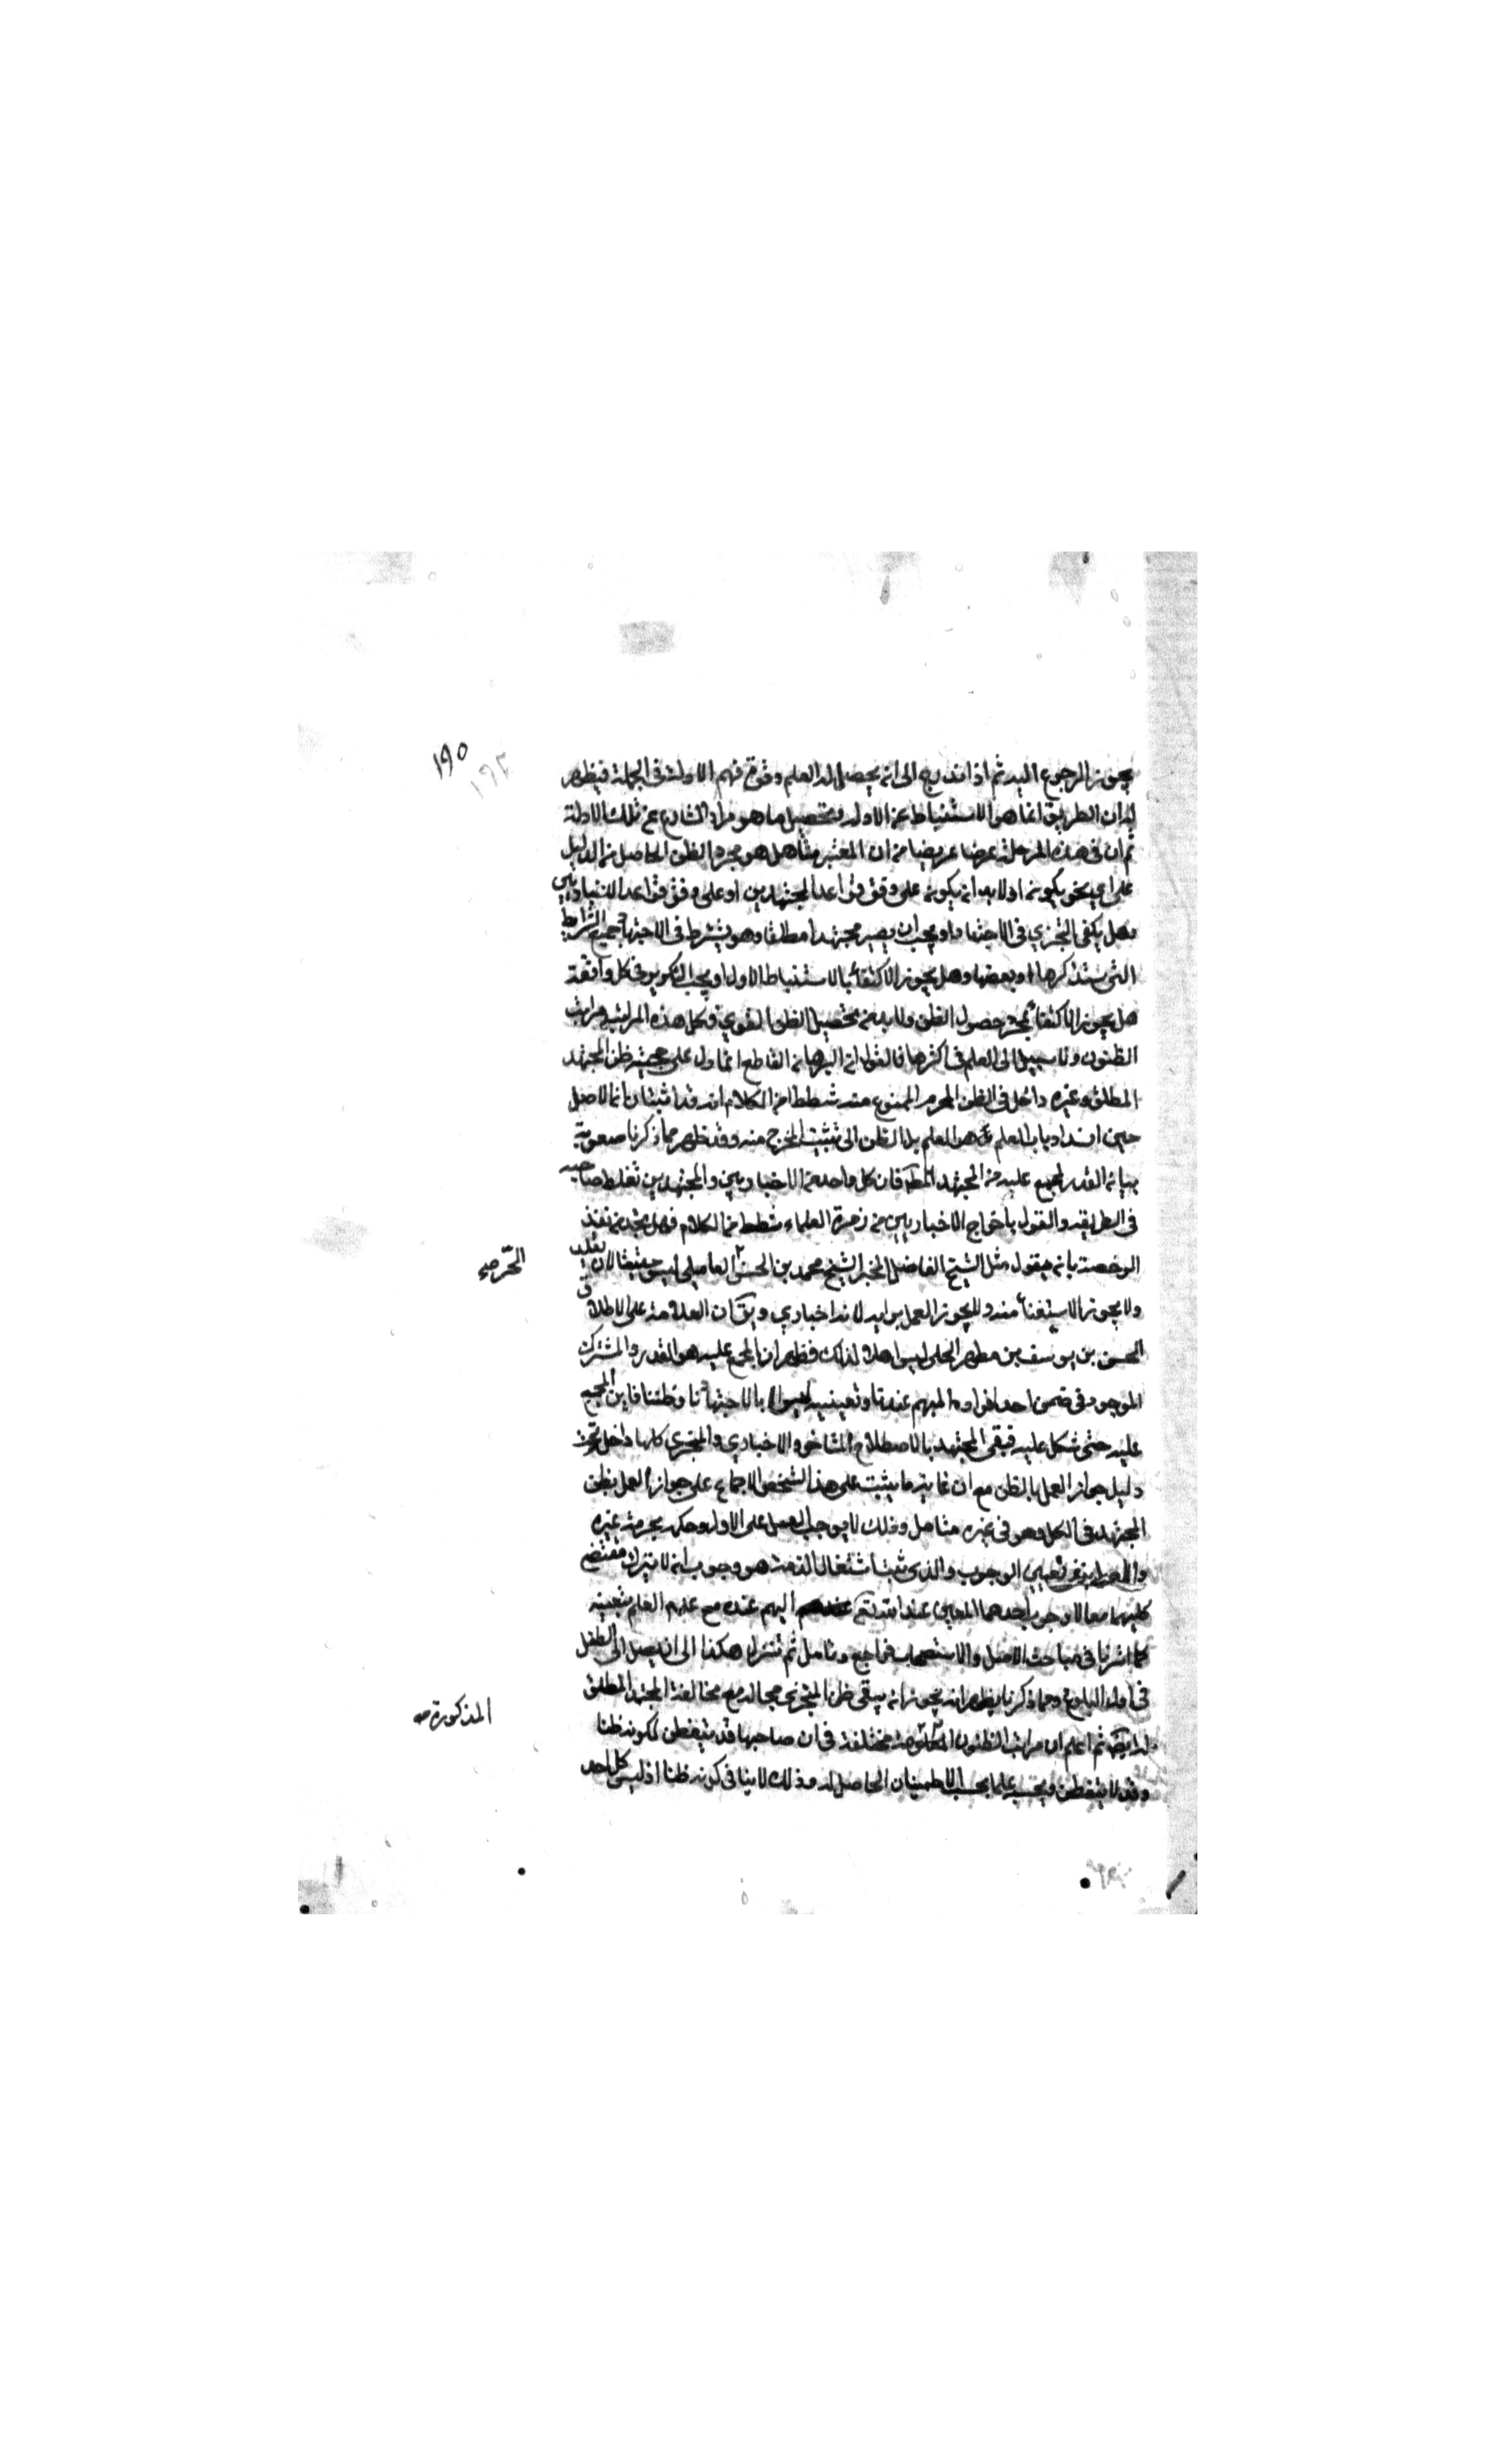 ١٩٥
١٩٢
يجوز الرجوع اليه ثم اذا تدرج الى ان يحصل له العلم وقوة فهم الادلة فى الجملة فيظهر
له ان الطريق انما هو الاستنباط عن الادلة وتحصيل ما هو مراد الشارع عن تلك الادلة
ثم ان فى هذه المرحلة عرضا عريضا من ان المعتبر هل هو مجرد الظن الحاصل من الدليل
على اى نحو يكون او لا بد ان يكون على وفق قواعد المجتهدين او على وفق قواعد الاخباريين
وهل يكفى التجزي فى الاجتهاد او يجب ان يصير مجتهدا مطلقا وهو يشترط فى الاجتهاد جميع الشرايط
التى سنذكرها او بعضها وهل يجوز الاكتفاء بالاستنباط الاول او يجب التكرير فى كل واقعة
هل يجوز الاكتفاء بمجرد حصول الظن ولا بد من تحصيل الظن القوي وكل هذه المراتب مراتب
الظنون ولا سبيل الى العلم فى اكثرها فالقول ان البرهان القاطع انما دل على حجية ظن المجتهد
المطلق وغيره داخل فى الظن المحرم الممنوع منه شطط من الكلام اذ قد اثبتنا ان الاصل
حين انسداد باب العلم هو العلم بالظن الى تثبيت المخرج منه وقد ظهر مما ذكرنا صعوبة
بيان القدر المجمع عليه من المجتهد المط فان كل واحد من الاخباريين والمجتهدين تغلط صاحبه
فى الطريقه والقول باخراج الاخباريين من زمرة العلماء شطط من الكلام فهل تجد من نفسك
الرخصة بان تقول مثل الشيخ الفاضل المتبحر الشيخ محمد بن الحسن العاملى ليس حقيقا لان يقلد
الحر صح
ولا يجوز الاستفتاء منه ولا يجوز العمل برايه لانه اخباري ويق ان العلامة على الاطلاق
الحسن بن يوسف بن مطهر الحلى ليس اهلا لذلك فظهر ان المجمع عليه هو القدر المشترك
الموجود فى ضمن احد افراده المبهم عندنا وتعيينه ليس الا بالاجتهادنا وظننا فاين المجمع
عليه حتى نتكل عليه فبقى المجتهد بالاصطلاح المتاخر والاخباري والمتجزي كلها داخل تحت
دليل جواز العمل بالظن مع ان غاية ما يثبت على هذا الشخص الاجماع على جواز العمل بظن
المجتهد فى الكل وهو فى غيره متامل وذلك لا يوجب العمل على الاول وحكم بحرمة غيره
تعيين الوجوب والذى ثبت اشتغال الذمة هو وجوب ان لا يترك مقتضى
كليهما معا لا وجوب احدهما المعين عند الله المبهم عنده مع عدم العلم بتعينه
كما اشرنا فى مباحث الاصل والاستصحاب فراجع وتامل ثم نتنزل هكذا الى ان يصل الى الطفل
فى اول البلوغ ومما ذكرنا يظهر انه يجوز ان يبقى ظن المتجزي بحاله مع مخالفة المجتهد المطلق
له ايضه ثم اعلم ان مراتب الظنون مختلفة فى ان صاحبها قد يتفطن لكونه ظنا
المذكورة صح
وقد لا يتفطن ويحسبه علما بحسب الاطمينان الحاصل له وذلك لا ينافى كونه ظنا اذ ليس كل احد